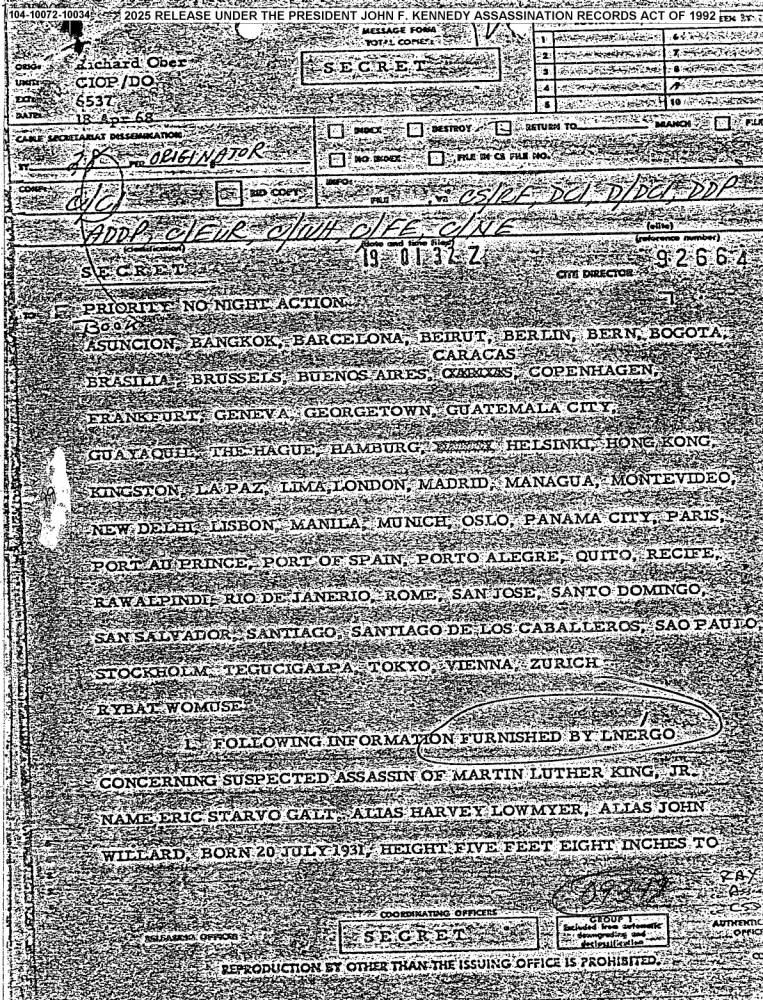 104-10072-10034
2025 RELEASE UNDER THE PRESIDENT JOHN F. KENNEDY ASSASSINATION RECORDS ACT OF 1992
MESSAGE FORM
TOTAL COPIES:
SECRET
1 6
2 7
3 8
4 9
5 10
ORIG: Richard Ober
UNIT: CIOP/DO
EXT: 6537
DATE: 18 Apr 68
CABLE SECRETARIAT DISSEMINATION
INDEX DESTROY RETURN TO BRANCH FILE
BY 28 PER ORIGINATOR
NO INDEX FILE IN CS FILE NO.
CONF: C/CI RID COPY INFO: FILE , VR CS/RF, DCI, D/DCI, DDP
ADDP, C/EUR, C/WH, C/FE, C/NE
(classification) (date and time filed) (elite) (reference number)
SECRET 19 01 32 Z CITE DIRECTOR 92664
TO PRIORITY NO NIGHT ACTION
Book
ASUNCION, BANGKOK, BARCELONA, BEIRUT, BERLIN, BERN, BOGOTA,
CARACAS
BRASILIA, BRUSSELS, BUENOS AIRES, COPENHAGEN,
FRANKFURT, GENEVA, GEORGETOWN, GUATEMALA CITY,
GUAYAQUIL, THE HAGUE, HAMBURG, HELSINKI, HONG KONG,
KINGSTON, LA PAZ, LIMA, LONDON, MADRID, MANAGUA, MONTEVIDEO,
NEW DELHI, LISBON, MANILA, MUNICH, OSLO, PANAMA CITY, PARIS,
PORT AU PRINCE, PORT OF SPAIN, PORTO ALEGRE, QUITO, RECIFE,
RAWALPINDI, RIO DE JANERIO, ROME, SAN JOSE, SANTO DOMINGO,
SAN SALVADOR, SANTIAGO, SANTIAGO DE LOS CABALLEROS, SAO PAULO,
STOCKHOLM, TEGUCIGALPA, TOKYO, VIENNA, ZURICH
RYBAT WOMUSE
1. FOLLOWING INFORMATION FURNISHED BY LNERGO
CONCERNING SUSPECTED ASSASSIN OF MARTIN LUTHER KING, JR.
NAME ERIC STARVO GALT, ALIAS HARVEY LOWMYER, ALIAS JOHN
WILLARD, BORN 20 JULY 1931, HEIGHT FIVE FEET EIGHT INCHES TO
COORDINATING OFFICERS
RELEASING OFFICER
SECRET
GROUP 1
Excluded from automatic
downgrading and
declassification
REPRODUCTION BY OTHER THAN THE ISSUING OFFICE IS PROHIBITED.